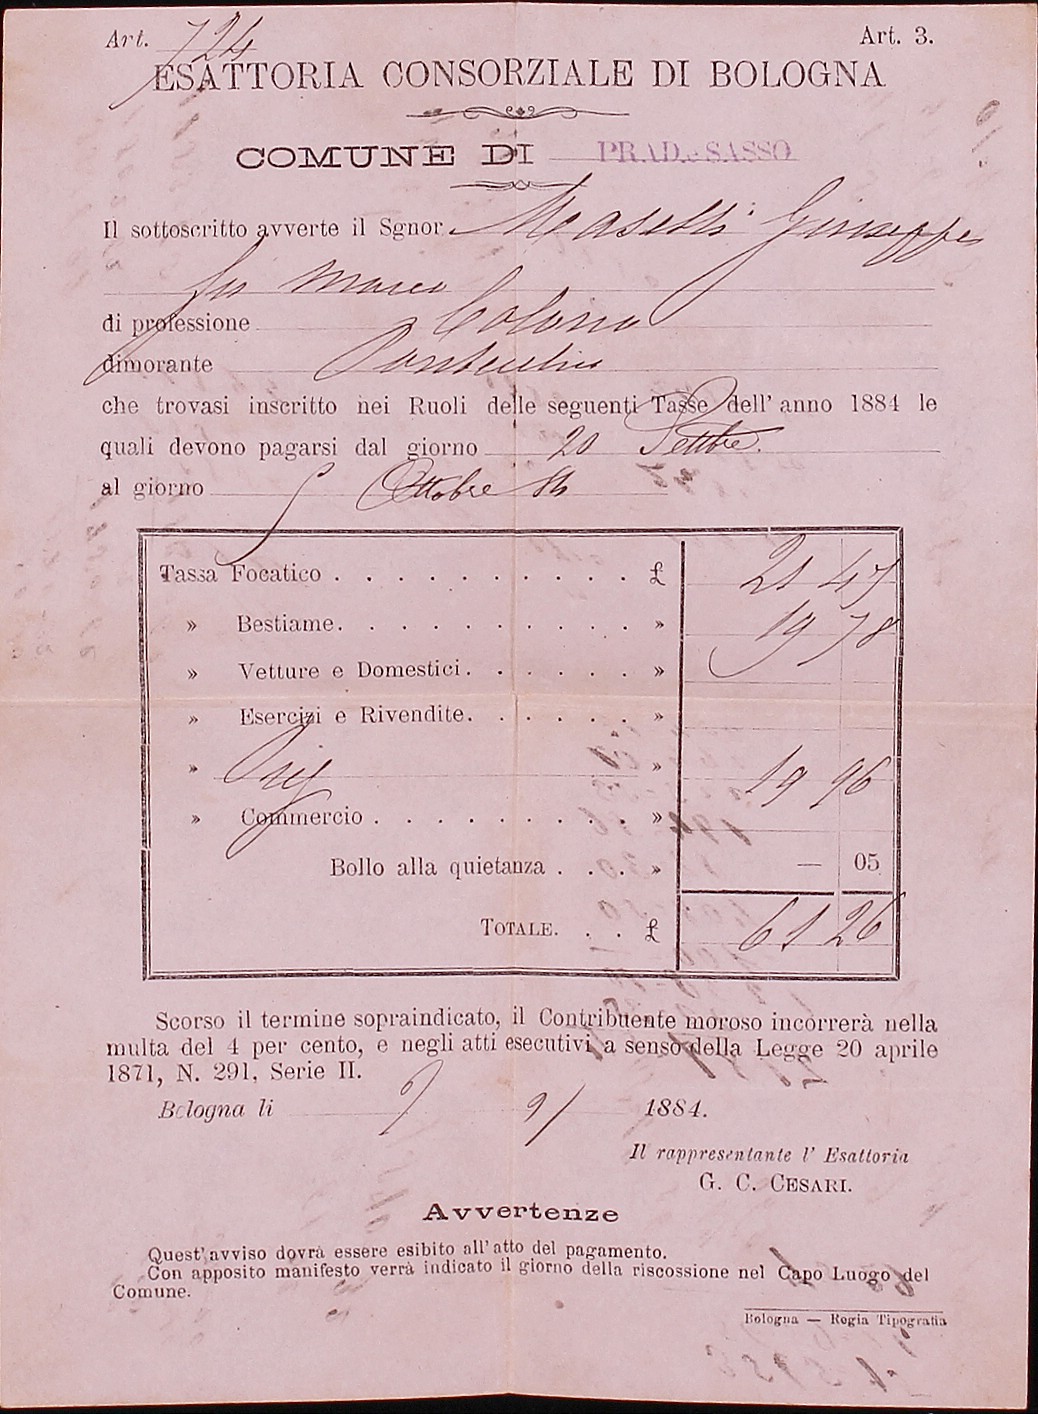 Art. 724
Art. 3.
ESATTORIA CONSORZIALE DI BOLOGNA
COMUNE DI PRAD. e SASSO
Il sottoscritto avverte il Sgnor Maselli Giuseppe
fu Marco
di professione Colono
dimorante Pontecchio
che trovasi inscritto nei Ruoli delle seguenti Tasse dell' anno 1884 le
quali devono pagarsi dal giorno 20 Settbre.
al giorno 5 Ottobre 84
Tassa Focatico . . . . . . . . . . £ 21 47
» Bestiame. . . . . . . . . . » 19 78
» Vetture e Domestici. . . . . . »
» Esercizi e Rivendite. . . . . . »
» » 19 96
» Commercio . . . . . . . . . »
Bollo alla quietanza . . . » — 05
TOTALE. . . £ 61 26
Scorso il termine sopraindicato, il Contribuente moroso incorrerà nella
multa del 4 per cento, e negli atti esecutivi a senso della Legge 20 aprile
1871, N. 291, Serie II.
Bologna li 9/ 1884.
Il rappresentante l' Esattoria
G. C. CESARI.
Avvertenze
Quest' avviso dovrà essere esibito all' atto del pagamento.
Con apposito manifesto verrà indicato il giorno della riscossione nel Capo Luogo del
Comune.
Bologna — Regia Tipografia